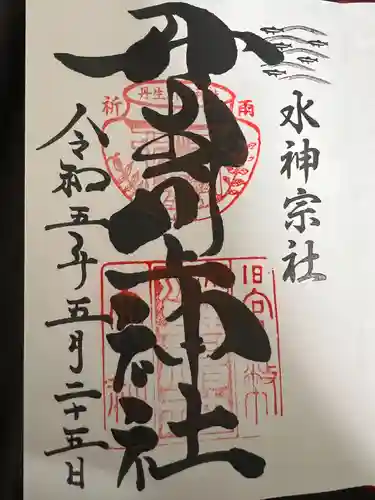 水神宗社
丹生川上神社
令和五年五月二十五日
祈
雨
丹生